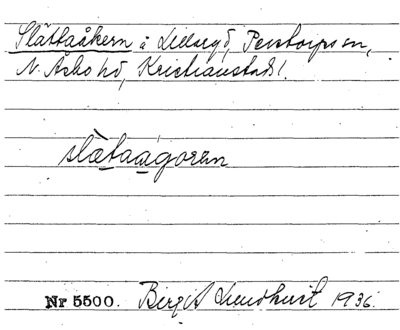 Slättaåkern å Lillsegö, Perstorps sn,
N. Åsbo hd, Kristianstads l.
slætaagoran
Nr 5500. Birgit Lundkvist 1936.